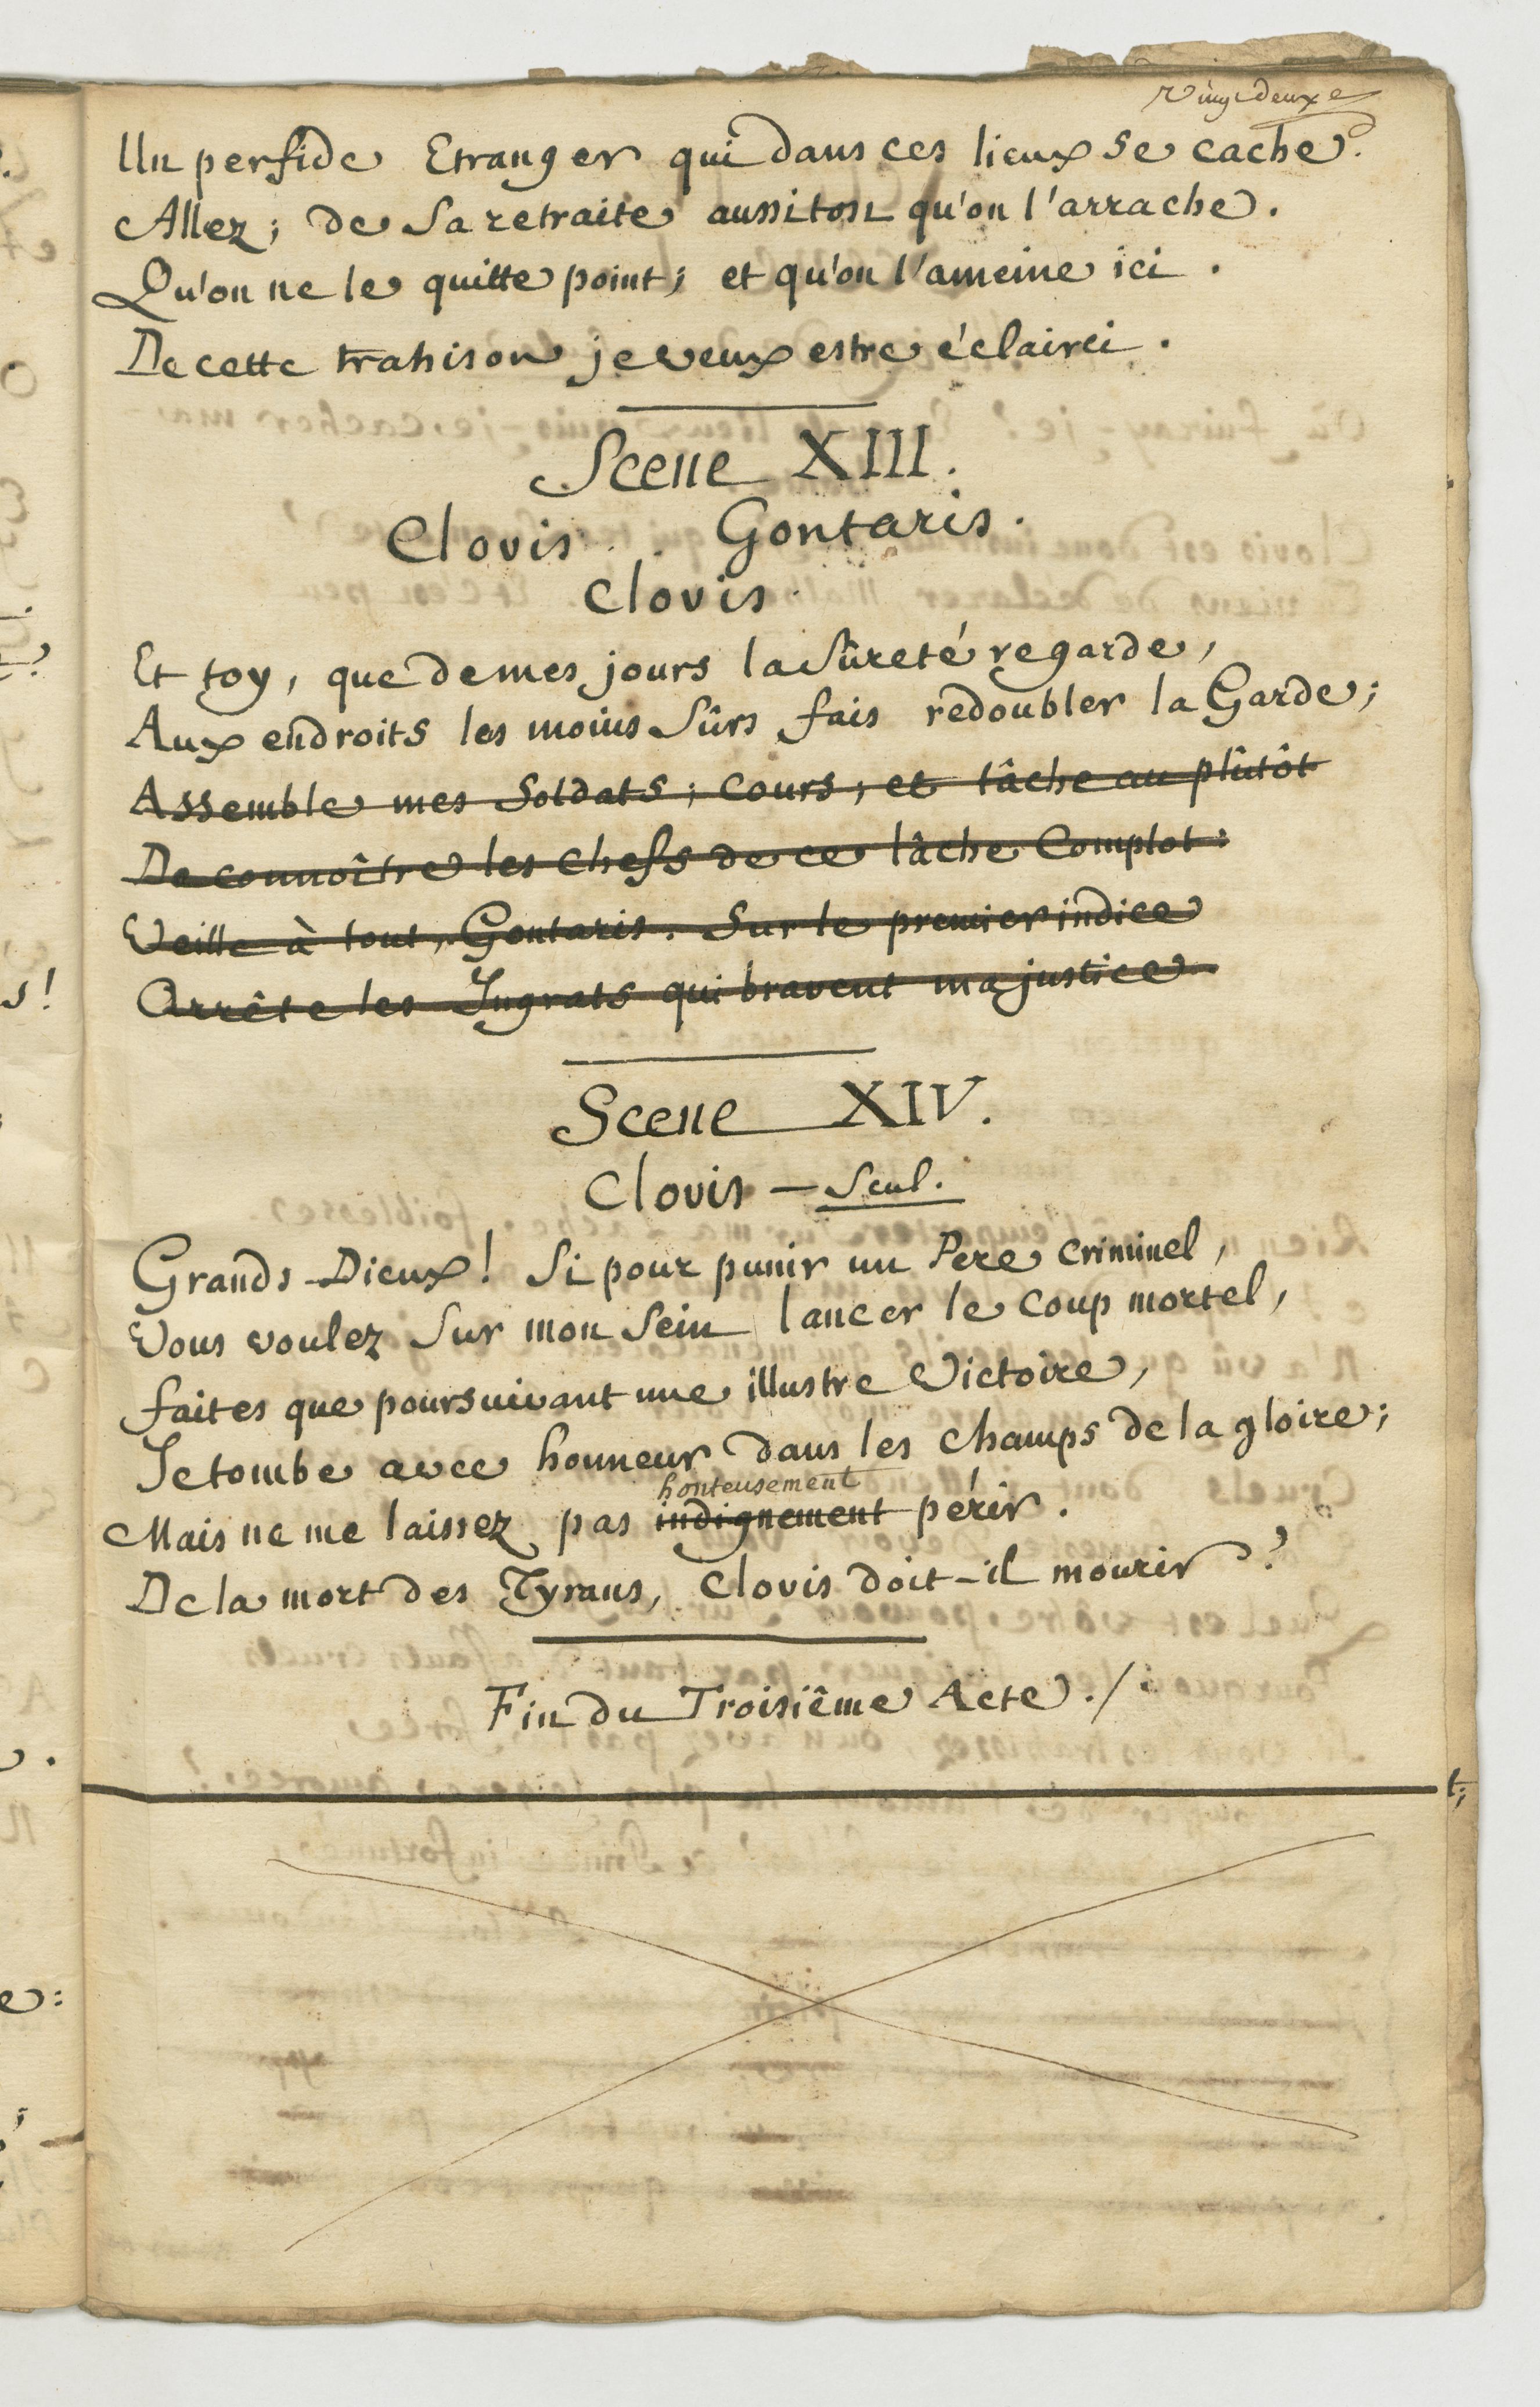 Vingtdeuxe
Un perfide Etranger qui dans ces lieux se cache.
Allez; de Sa retraite aussitost qu'on l'arrache.
Qu'on ne le quitte point; et qu'on l'ameine ici.
De cette trahison je veux estre éclairci.
Scene XIII.
Clovis. Gontaris.
Clovis.
Et toy, que de mes jours la Sûreté regarde,
Aux endroits les moins Sûrs fais redoubler la Garde;
Assemble mes Soldats; Cours; et tâche au plûtôt
De connoître les Chefs de ce lâche Complot:
Veille à tout, Gontaris. Sur le premier indice
Arrête les Ingrats qui bravent ma justice.
Scene XIV.
Clovis — Seul.
Grands Dieux! Si pour punir un Pere Criminel,
Vous voulez Sur mon Sein lancer le Coup mortel,
faites que poursuivant une illustre Victoire,
Je tombe avec honneur dans les Champs de la gloire;
honteusement
Mais ne me laissez pas indignement périr.
De la mort des Tyrans, Clovis doit-il mourir?
Fin du Troisiême Acte./.